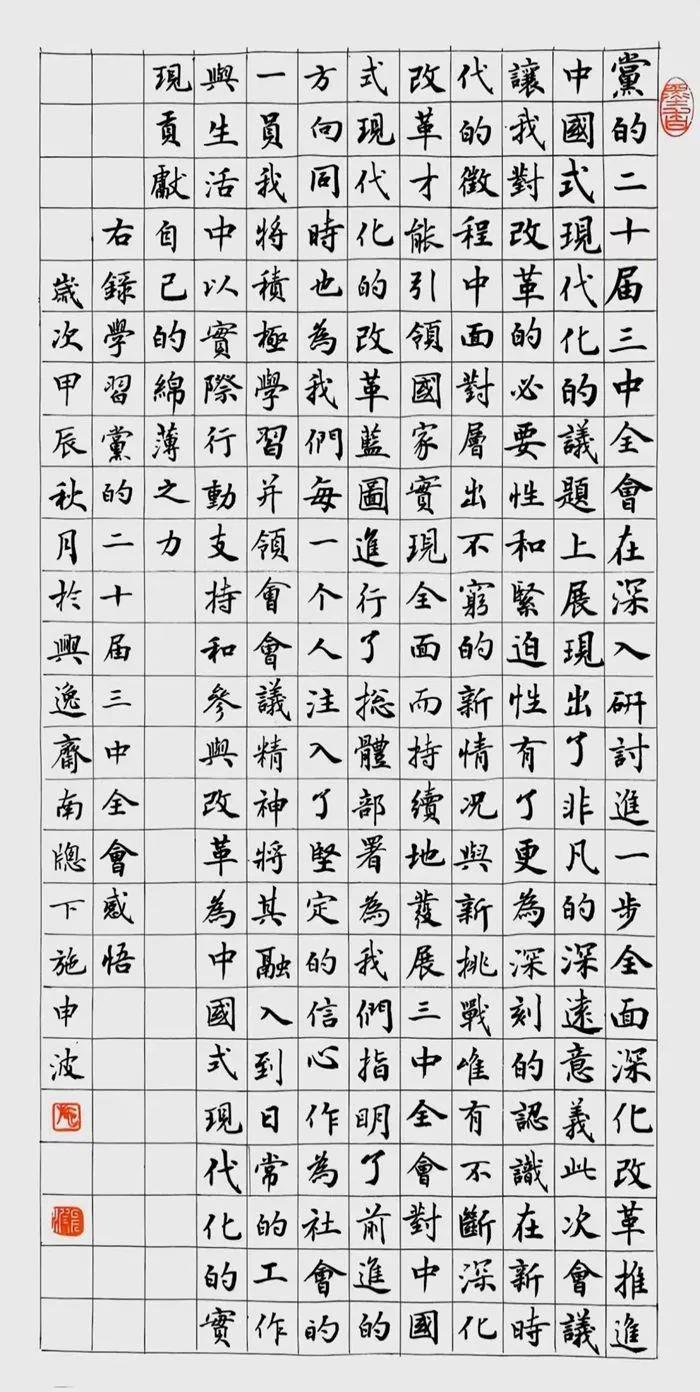 墨香
黨的二十届三中全會在深入研討進一步全面深化改革推進
中國式現代化的議題上展現出了非凡的深遠意義此次會議
讓我對改革的必要性和緊迫性有了更為深刻的認識在新時
代的徵程中面對層出不窮的新情况與新挑戰唯有不斷深化
改革才能引領國家實現全面而持續地發展三中全會對中國
式現代化的改革藍圖進行了総體部署為我們指明了前進的
方向同時也為我們每一个人注入了堅定的信心作為社會的
一員我將積極學習并領會會議精神將其融入到日常的工作
與生活中以實際行動支持和參與改革為中國式現代化的實
現貢獻自己的綿薄之力
右錄學習黨的二十届三中全會感悟
歲次甲辰秋月於興逸齋南牕下施申波